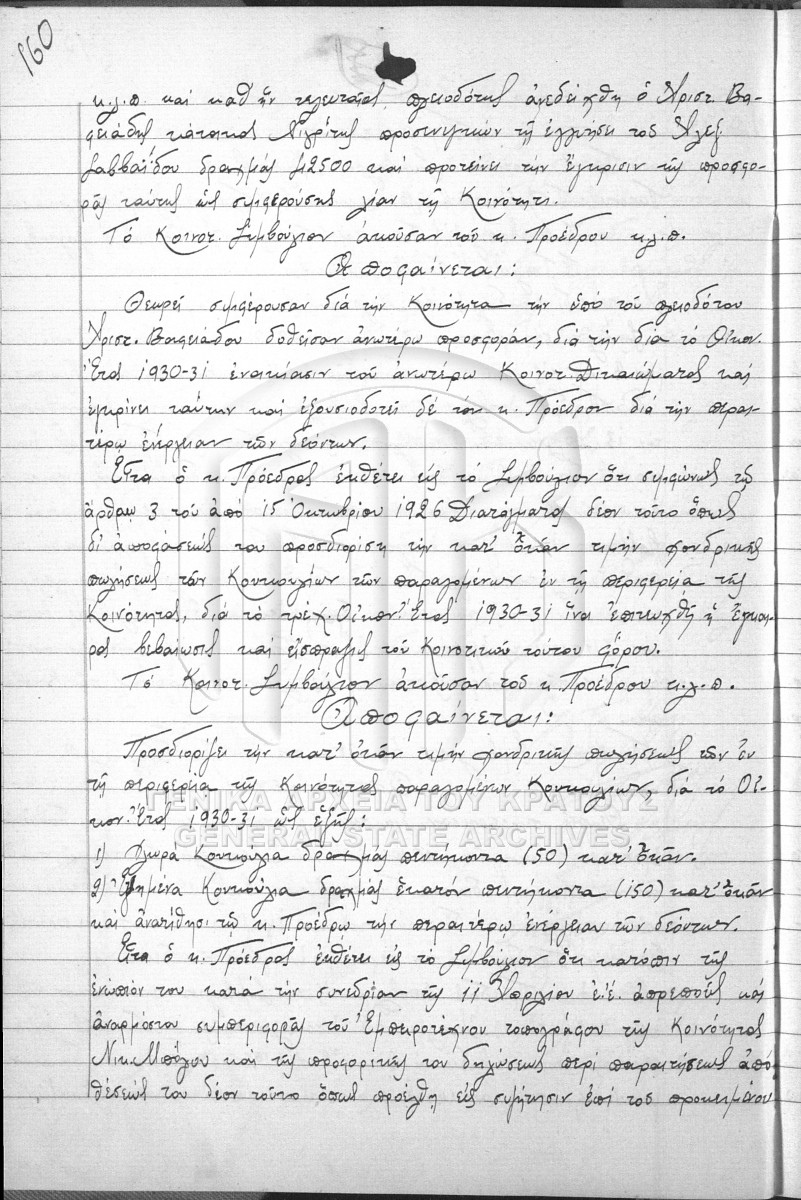 160
κ.λ.π. καί καθ' ἥν τελευταῖος πλειοδότης ἀνεδείχθη ὁ Χριστ. Βα-
φειάδης κάτοικος Νιγρίτης προσενεγκών τῇ ἐγγυήσει τοῦ Ἀλεξ.
Σαββαΐδου δραχμάς 42500 καί προτείνει τήν ἔγκρισιν τῆς προσφο-
ρᾶς ταύτης ὡς συμφερούσης λίαν τῇ Κοινότητι.
Τό Κοινοτ. Συμβούλιον ἀκοῦσαν τοῦ κ. Προέδρου κ.λ.π.
Ἀποφαίνεται:
Θεωρεῖ συμφέρουσαν διά τήν Κοινότητα τήν ὑπό τοῦ πλειοδότου
Χριστ. Βαφειάδου δοθεῖσαν ἀνωτέρω προσφοράν, διά τήν διά τό Οἰκον.
Ἔτος 1930-31 ἐνοικίασιν τοῦ ἀνωτέρω Κοινοτ. Δικαιώματος καί
ἐγκρίνει ταύτην καί ἐξουσιοδοτεῖ δέ τόν κ. Πρόεδρον διά τήν περαι-
τέρω ἐνέργειαν τῶν δεόντων.
Εἶτα ὁ κ. Πρόεδρος ἐκθέτει εἰς τό Συμβούλιον ὅτι συμφώνως τῷ
ἄρθρῳ 3 τοῦ ἀπό 15 Ὀκτωβρίου 1926 Διατάγματος δέον τοῦτο ὅπως
δι' ἀποφάσεώς του προσδιορίσῃ τήν κατ' ὀκάν τιμήν χονδρικῆς
πωλήσεως τῶν Κουκουλίων τῶν παραγομένων ἐν τῇ περιφερείᾳ τῆς
Κοινότητος, διά τό τρέχ. Οἰκον. Ἔτος 1930-31 ἵνα ἐπιτευχθῇ ἡ ἔγκαι-
ρος βεβαίωσις καί εἴσπραξις τοῦ Κοινοτικοῦ τούτου φόρου.
Τό Κοινοτ. Συμβούλιον ἀκοῦσαν τοῦ κ. Προέδρου κ.λ.π.
Ἀποφαίνεται:
Προσδιορίζει τήν κατ' ὀκάν τιμήν χονδρικῆς πωλήσεως τῶν ἐν
τῇ περιφερείᾳ τῆς Κοινότητος παραγομένων Κουκουλίων, διά τό Οἰ-
κον. Ἔτος 1930-31 ὡς ἑξῆς:
ΓΕΝΙΚΑ ΑΡΧΕΙΑ ΤΟΥ ΚΡΑΤΟΥΣ
GENERAL STATE ARCHIVES
1) Χλωρά Κουκούλια δραχμάς πεντήκοντα (50) κατ' ὀκάν.
2) Ξημένα Κουκούλια δραχμάς ἑκατόν πεντήκοντα (150) κατ' ὀκάν
καί ἀνατίθησι τῷ κ. Προέδρῳ τήν περαιτέρω ἐνέργειαν τῶν δεόντων.
Εἶτα ὁ κ. Πρόεδρος ἐκθέτει εἰς τό Συμβούλιον ὅτι κατόπιν τῆς
ἐνώπιόν του κατά τήν συνεδρίαν τῆς 11 Ἀπριλίου ἐ.ἔ. ἀπρεποῦς καί
ἀναρμόστου συμπεριφορᾶς τοῦ Ἐμπειροτέχνου τοπογράφου τῆς Κοινότητος
Νικ. Μπόλιου καί τῆς προφορικῆς του δηλώσεως περί παραιτήσεως ἀπό
θέσεώς του δέον τοῦτο ὅπως προέλθῃ εἰς συζήτησιν ἐπί τοῦ προκειμένου